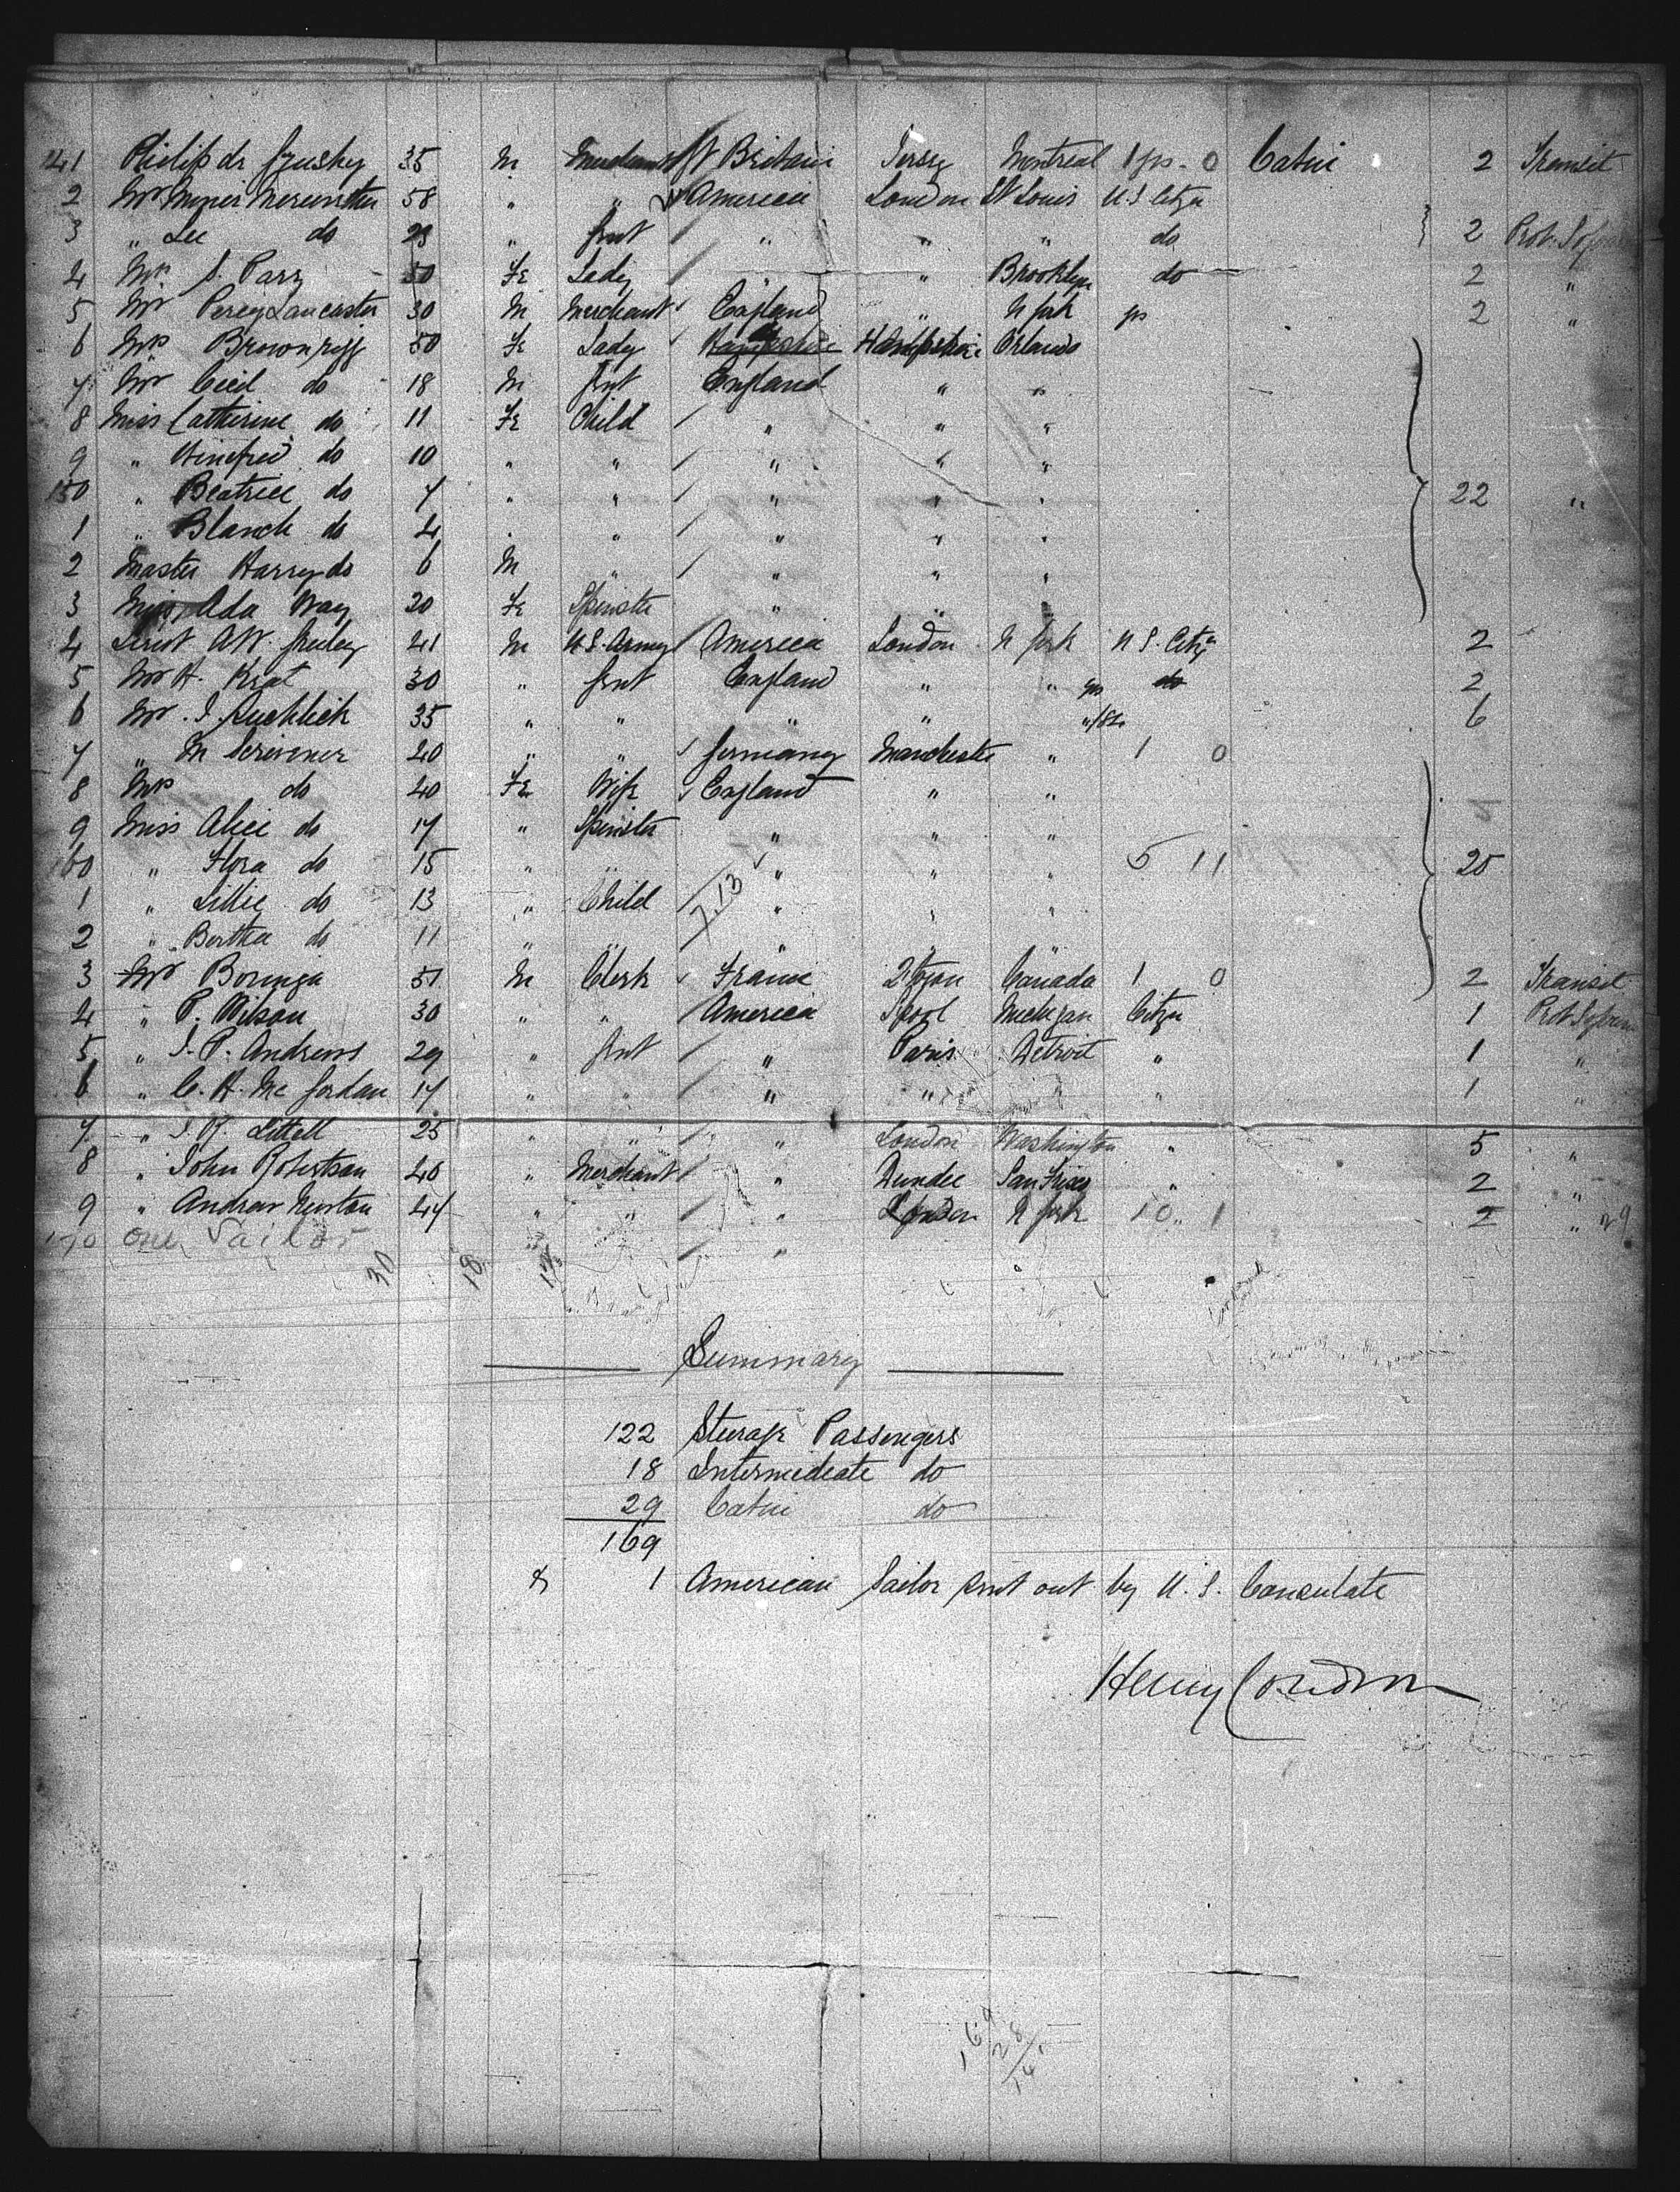 41 Philip de 35 M Merchant Gt Britain Jersey Montreal 1 ys. 0 Cabin 2 Transit
2 Mr 58 " " America London St Louis U.S Citzn
3 " Lee do 23 " Gnt " " " do 2
4 Mrs S. Parr 50 Fe Lady " " Brooklyn do 2 "
5 Mr Percy Lancaster 30 M Merchant England " N York ys 2 "
6 Mrs Brownrigg 50 Fe Lady Hampshire Hampshire Orlando
7 Mr Cecil do 18 M Gnt England " "
8 Miss Catherine do 11 Fe Child " " "
9 " Winefred do 10 " " " " "
150 " Beatrice do 7 " " " " " 22 "
1 " Blanch do 4 " " " " "
2 Master Harry do 6 M " " " "
3 Miss Ada Way 20 Fe Spinster " " "
4 Lieut A.W. Greeley 41 M U.S. Army America London N York U S. Citzn 2
5 Mr H. 30 " Gnt England " " ys do 2
6 Mr. J. 35 " " " " " 6
7 " M Scrivener 40 " " Germany Manchester " 1 0
8 Mrs do 40 Fe Wife England " "
9 Miss Alice do 17 " Spinster " " "
160 " Flora do 15 " " " " " 5 11 25
1 " Lillie do 13 " Child 7.13 " " "
2 " Bertha do 11 " " " " "
3 Mr 51 M Clerk France Canada 1 0 2 Transit
4 " P. Wilson 30 " " America Lpool Michigan Citzn 1
5 " J. P. Andrews 29 " Gnt " Paris Detroit " 1 "
6 " C. H. Mc Jordan 17 " " " " " " 1 "
7 " J. R. Littell 25 " " " London Washington " 5 "
8 " John Robertson 40 " Merchant " Dundee San Frisco " 2 "
9 " Andrew Newton 44 " " " London N York 10 " 1 2 " 29
170 One Sailor "
30 18
Summary
122 Steerage Passengers
18 Intermediate do
29 Cabin do
169
& 1 American Sailor sent out by U. S. Consulate
Henry Condron
169
28